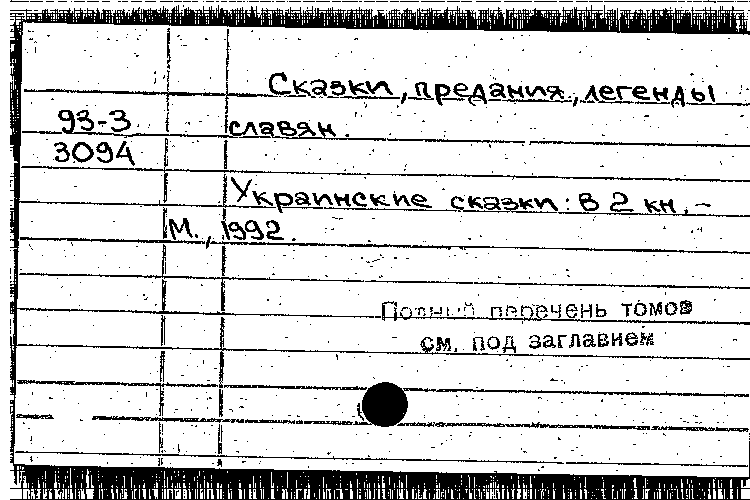 Сказки, предания, легенды
93-3
славян.
3094
Украинские сказки: В 2 кн. –
М., 1992.
Полный перечень томов
см. под заглавием